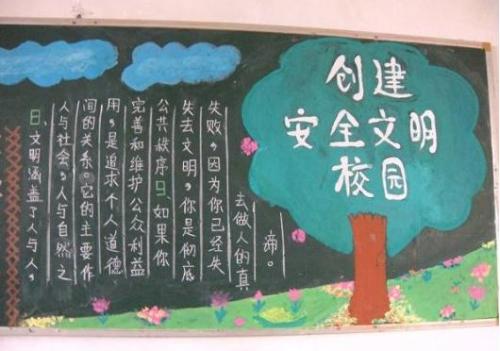 创建
安全文明
校园
日、文明涵盖了人与人,
人与社会,人与自然之
间的关系。它的主要作
用,是追求个人道德
完善和维护公众利益
公共秩序日、如果你
失去文明,你是彻底
失败,因为你已经失
去做人的真
谛。